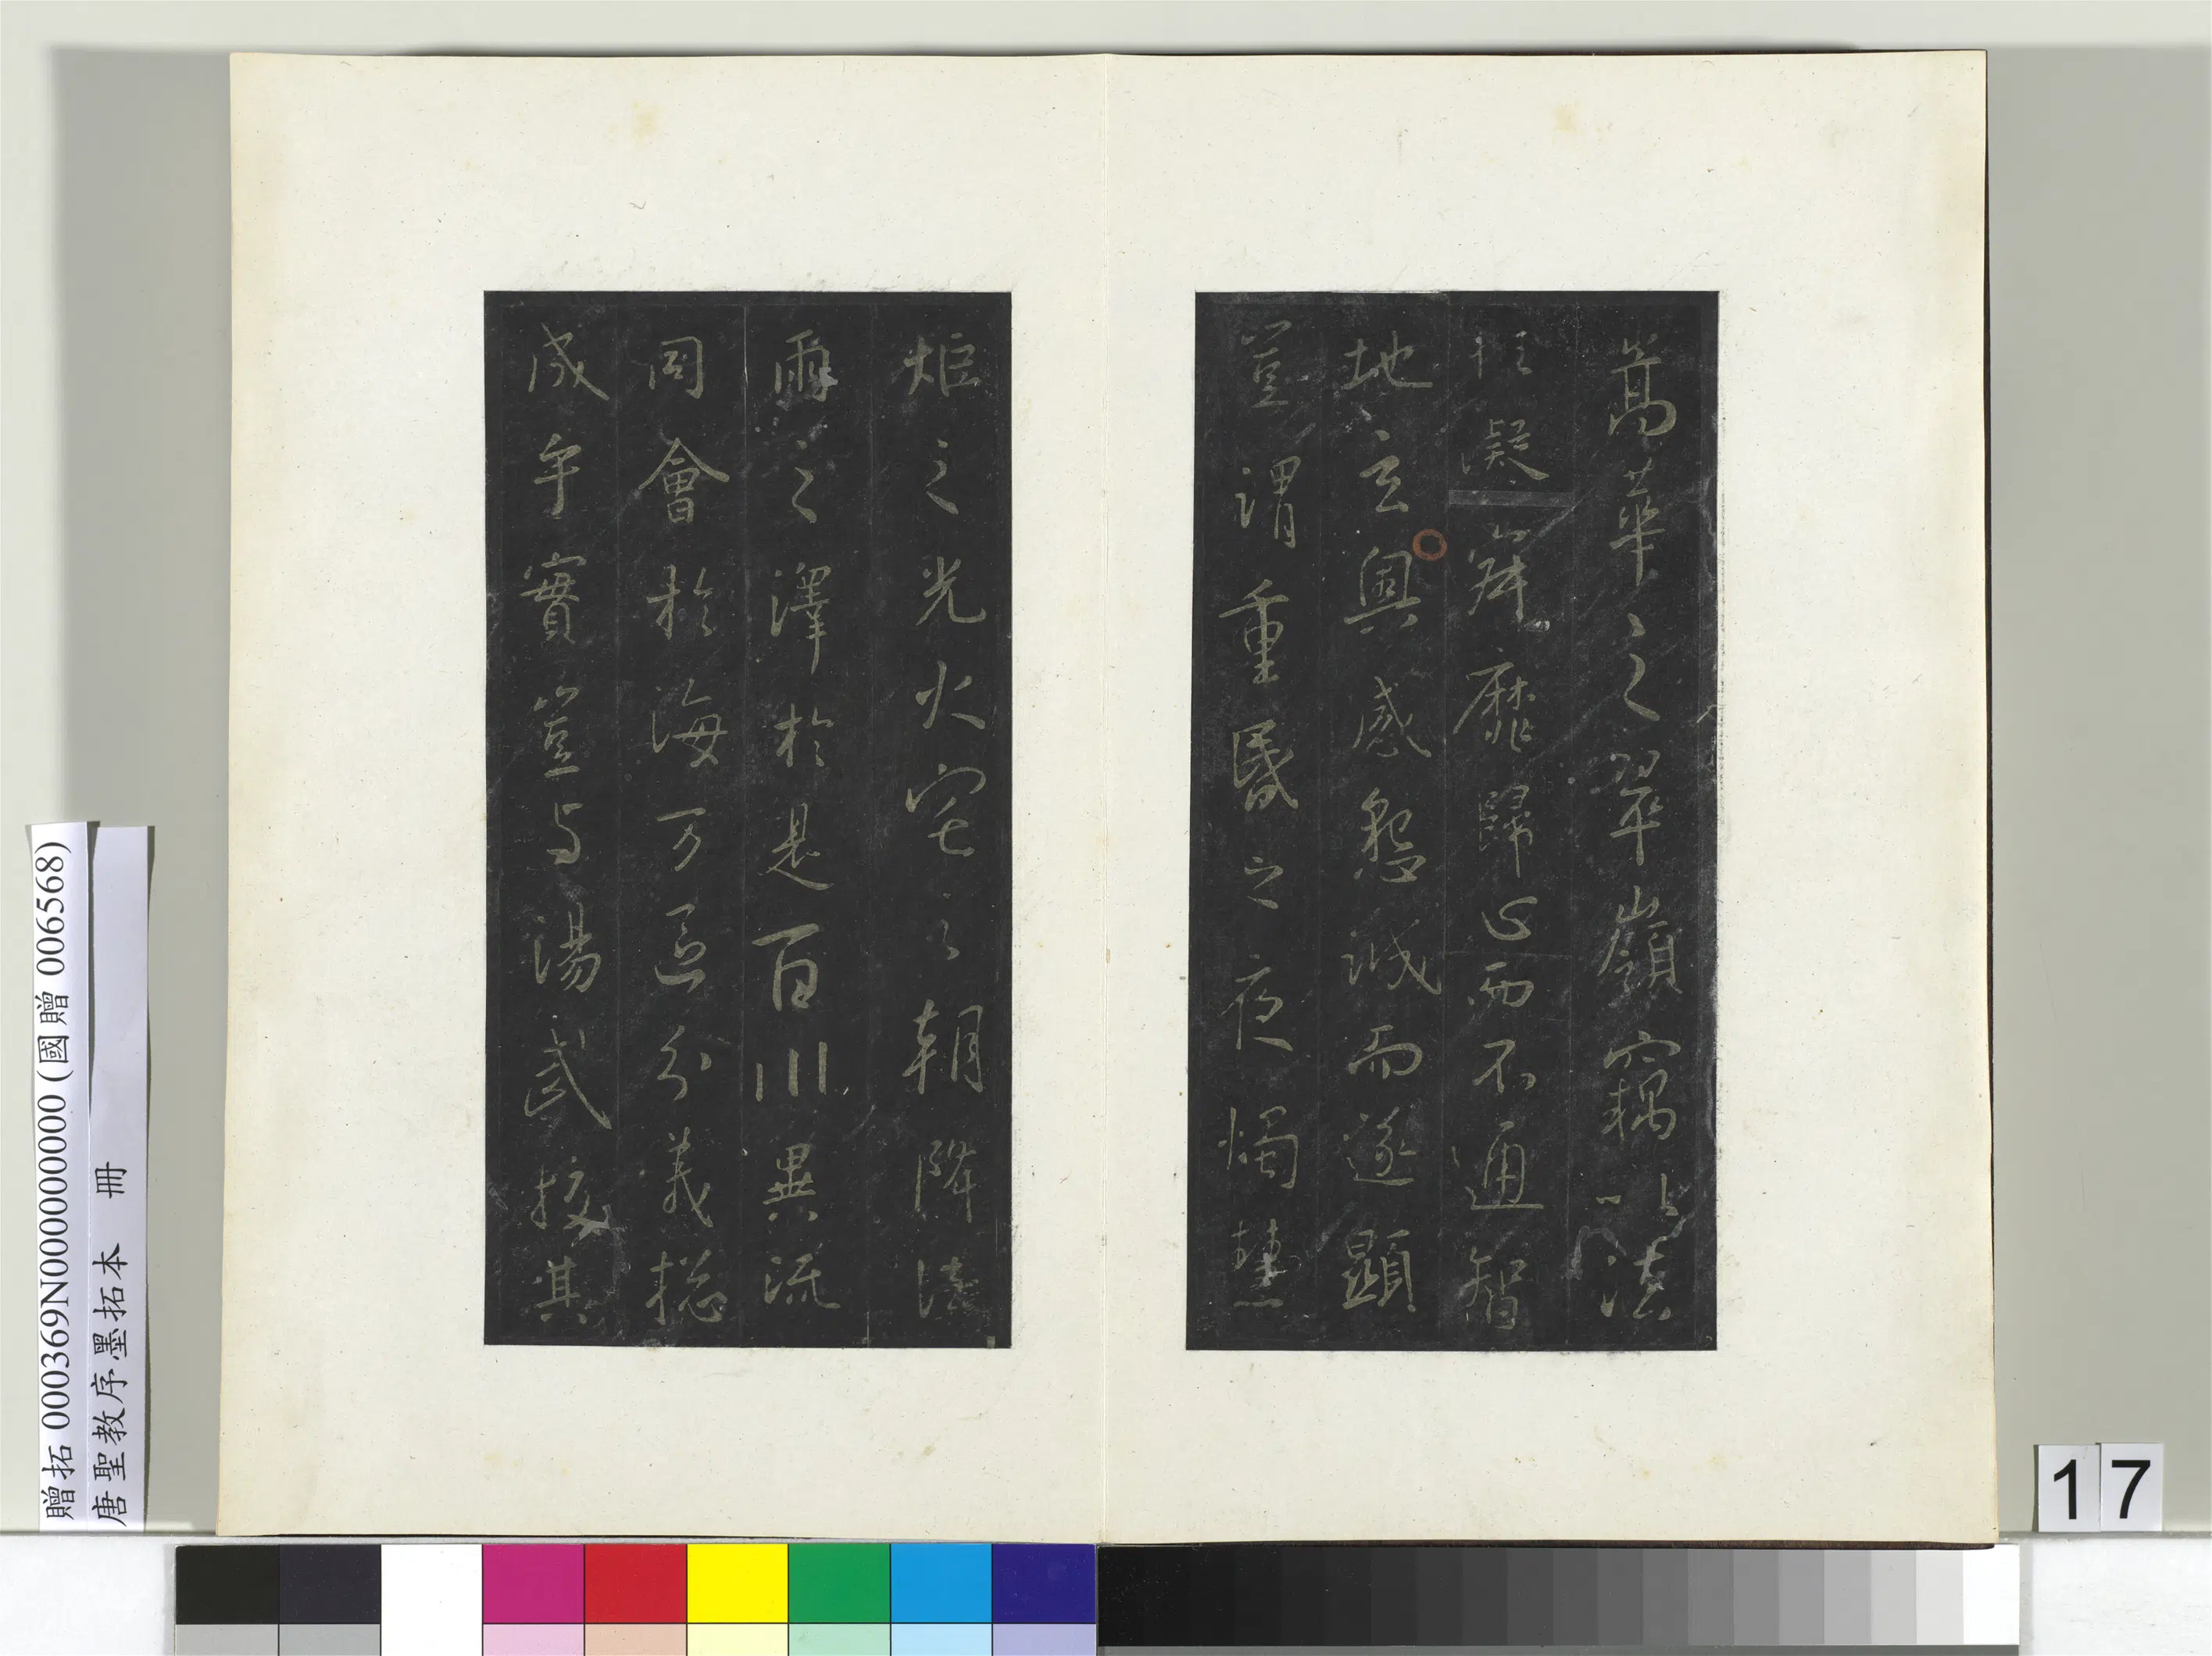 嵩華之翠嶺竊以法
性凝寂靡歸心而不通智
地玄奧感懇誠而遂顯
豈謂重昏之夜燭慧
炬之光火宅之朝降法
雨之澤於是百川異流
同會於海万區分義揔
成乎實豈与湯武挍其
贈拓 000369N000000000 (國贈 006568)
唐聖教序墨拓本 冊
17